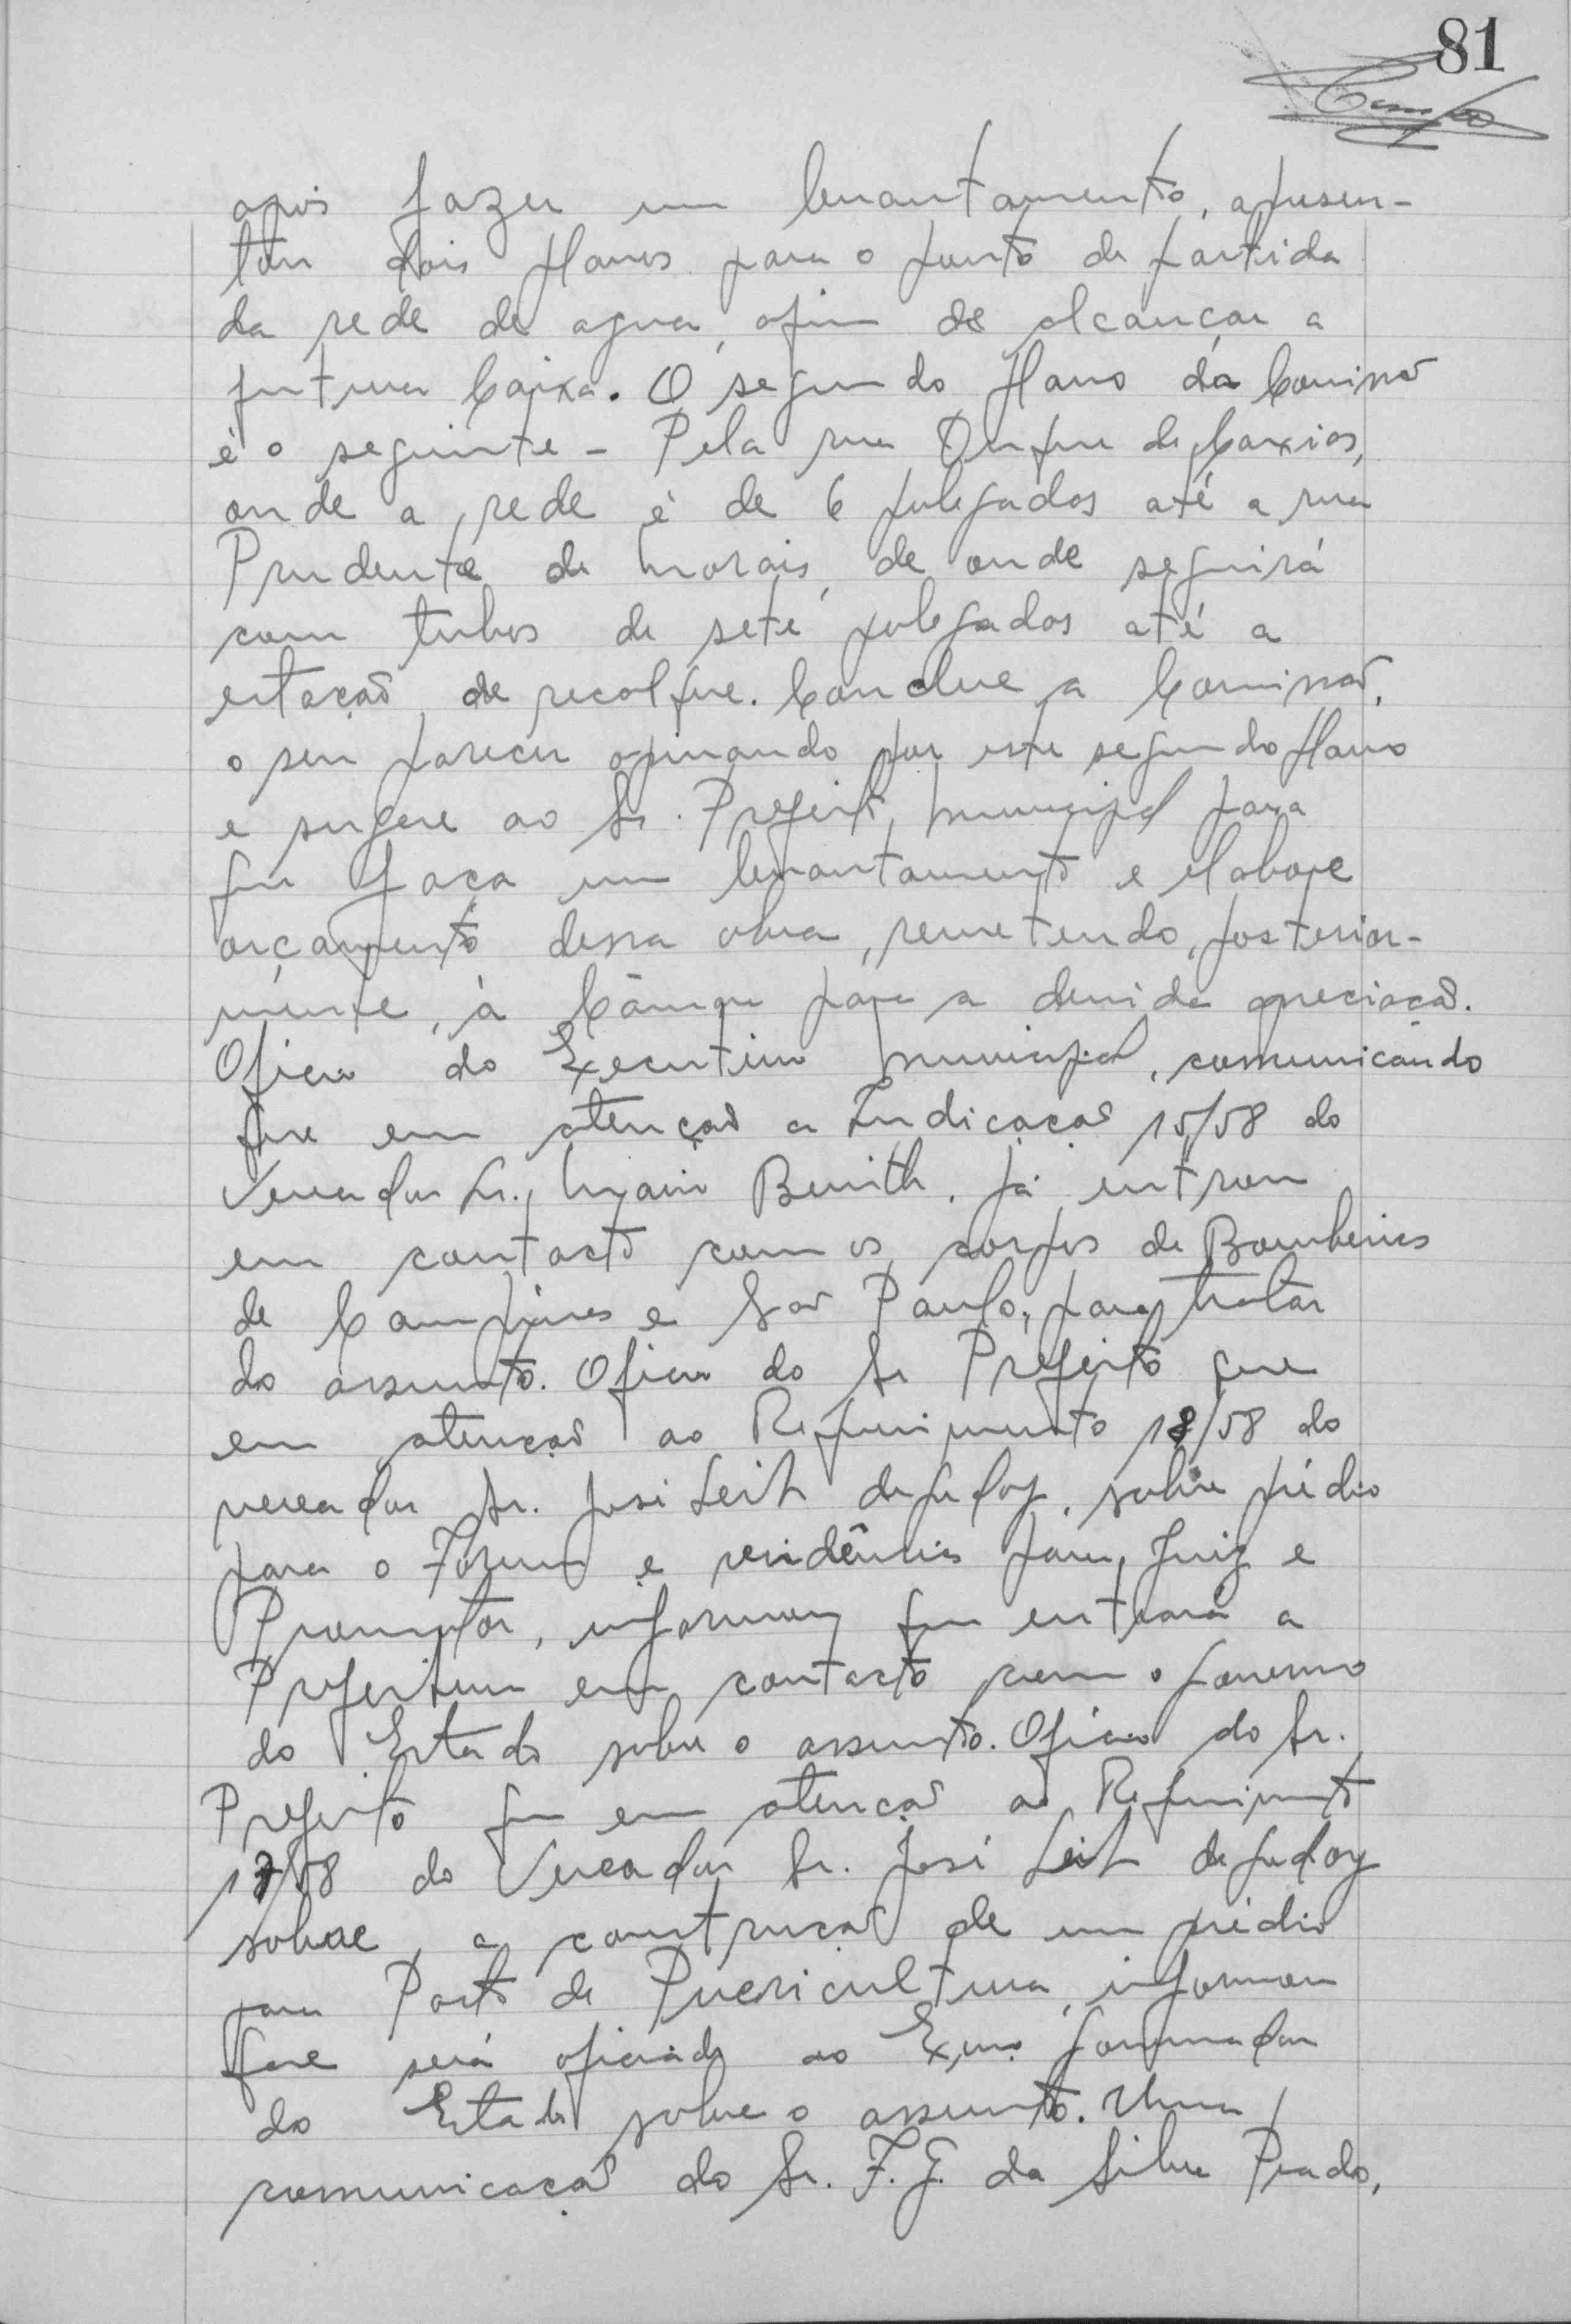 81
após fazer um levantamento, apresen-
tou dois planos para o ponto de partida
da rede de agua, afim de alcançar a
futura Caixa. O segundo plano da Comissão
é o seguinte - Pela rua Duque de Caxias,
onde a rede é de 6 pulegadas até a rua
Prudente de Morais, de onde seguirá
com tubos de sete pulegadas até a
estação de recalque. Conclue a Comissão,
o seu parecer opinando por este segundo plano
e sugere ao Sr. Prefeito Municipal para
que faça um levantamento e elabore
orçamento dessa obra, remetendo, posterior-
mente, à Câmara para a devida apreciação.
Oficio do Executivo Municipal, comunicando
que em atenção a Indicação 15/58 do
Vereador Sr. Mario Benith. já entrou
em contacto com os corpos de Bombeiros
de Campinas e São Paulo, para tratar
do assunto. Oficio do Sr Prefeito que
em atenção ao Requerimento 18/58 do
vereador Sr. José Leite de Godoy, sobre prédio
para o Forum e residências para Juiz e
Promotor, informou que entrará a
Prefeitura em contacto com o governo
do Estado sobre o assunto. Oficio do Sr.
Prefeito que em atenção ao Requerimento
17/58 do Vereador Sr. José Leite de Godoy
sobre a construção de um prédio
para Posto de Puericultura, informou
que será oficiado ao Exmo Governador
do Estado sobre o assunto. Uma
comunicação do Sr. F. G. da Silva Prado,